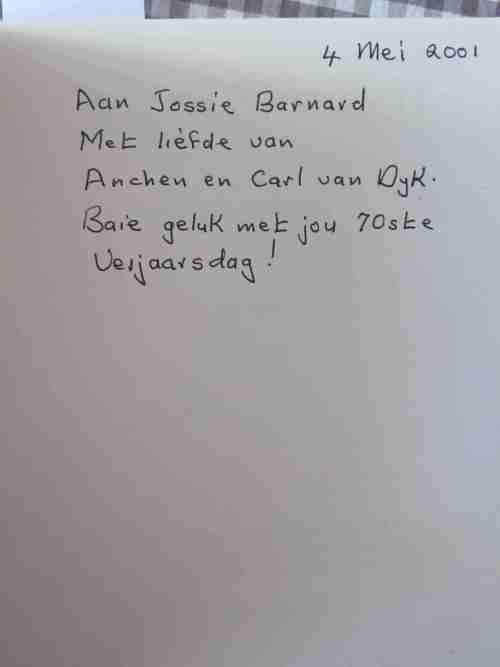 4 Mei 2001
Aan Jossie Barnard
Met liefde van
Anchen en Carl van Dyk.
Baie geluk met jou 70ste
Verjaarsdag!